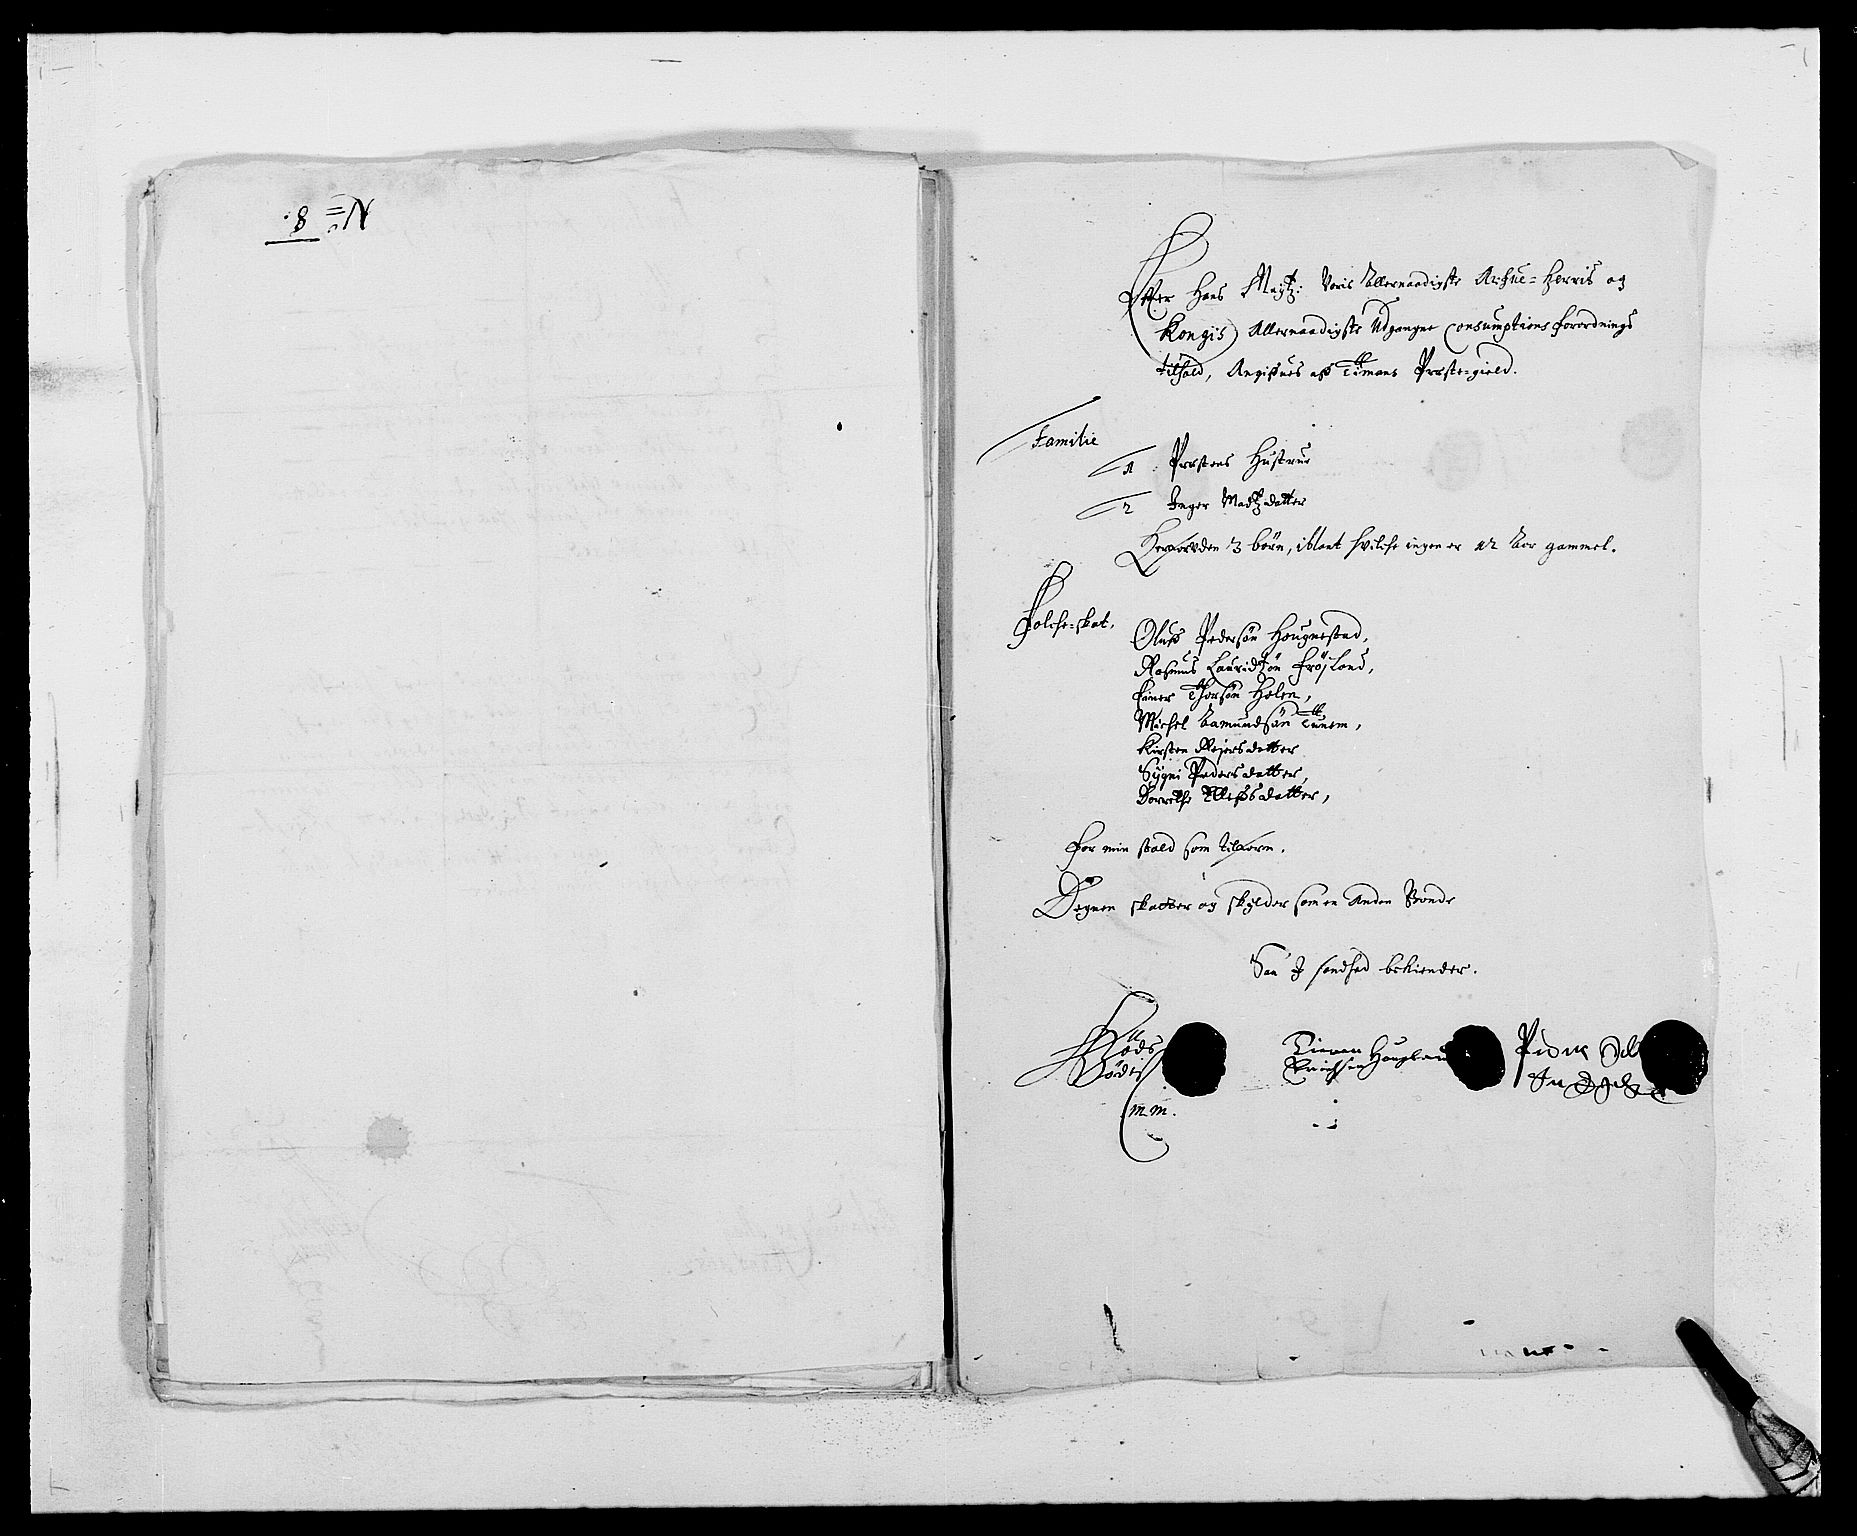 No 8.
Efter Hans Mayt: Voris Allernaadigste Arfue-Herris og
Kongis Allernaadigste Udgangne Consumptions forordnings
tilhold, Angifues aff Timans Præste-gield.
Familie
1. Præstens Hustrue
2 Inger Madtzdatter
Herforuden 3 børn, iblant huilche ingen er 12 Aar gammel.
Folche-skat.
Oluff Pedersøn Hougnestad,
Rasmus Lauridtzøn Frøjland,
Einer Thorsøn Holen,
Michel Aamundsøn Tunem,
Kirsten Rejersdatter
Sygni Pedersdatter,
Dorrethe Elliffsdatter,
For min stald som tilforn.
Degnen skatter og skylder som en Anden Bonde
Saa I sandhed bekiender.
Mads
Tieran Haugland
Erichsen
m m.